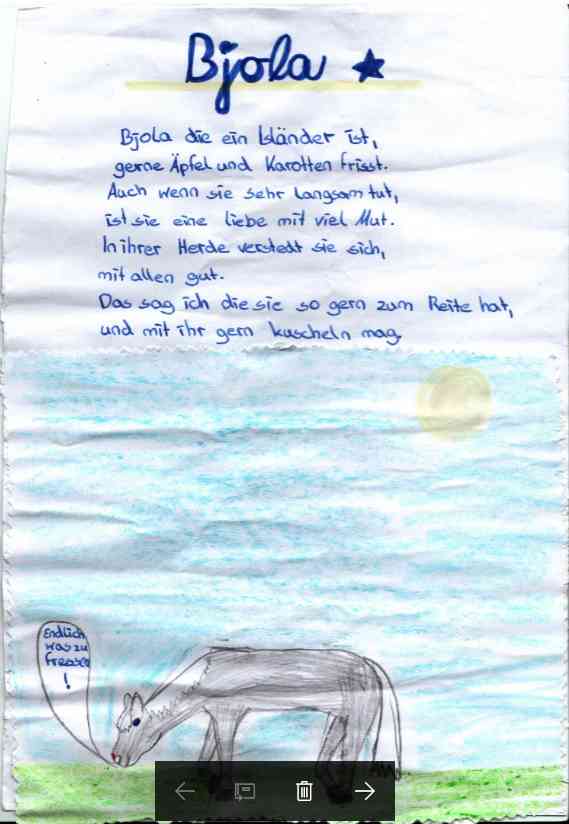 Bjola
Bjola die ein Isländer ist,
gerne Äpfel und Karotten frisst.
Auch wenn sie sehr langsam tut,
ist sie eine liebe mit viel Mut.
In ihrer Herde versteht sie sich,
mit allen gut.
Das sag ich die sie so gern zum Reite hat,
und mit ihr gern kuscheln mag.
Endlich
was zu
fressen
!